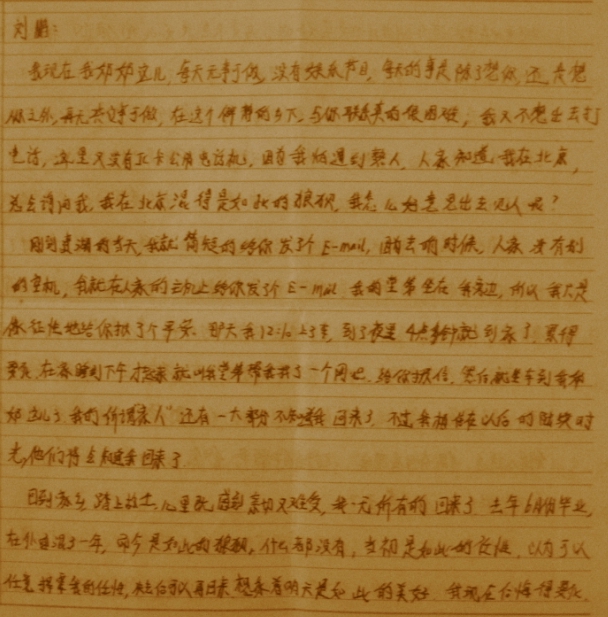 刘鹏：
我现在我姥姥这儿，每天无事可做，没有娱乐节目，每天的事是除了想你，还是想
你之外，再无其它事可做，在这个偏僻的乡下，与你联系真的很困难，我又不想出去打
电话，这里又没有IC卡公用电话机，因为我怕遇到熟人，人家知道我在北京，
总会询问我，我在北京混得是如此的狼狈，我怎么好意思出去见人呢？
回到的当天，我就简短的给你发了个E-mail，因为去的时候，人家没有别
的空机，我就在人家的主机上给你发了个E-mail 我的堂弟坐在我旁边，所以我只是
象征性地给你报了个平安，那天我12:10上了车，到了夜里4点多钟就到家了，累得
要死，在家睡到下午才起来就叫我堂弟带我去了一个网吧，给你报信，然后就坐车到我姥
姥这儿了 我的所谓"亲人"还有一大部分不知道我回来了，不过我相信在以后的短暂时
光，他们将会知道我回来了
回到家乡，踏上故土，心里既感到亲切又难受，我一无所有的回来了 去年6月份毕业，
在外面混了一年，而今是如此的狼狈，什么都没有，当初是如此的任性，以为可以
任意挥霍我的任性，想象着明天是如此的美好 我现在后悔得要死，